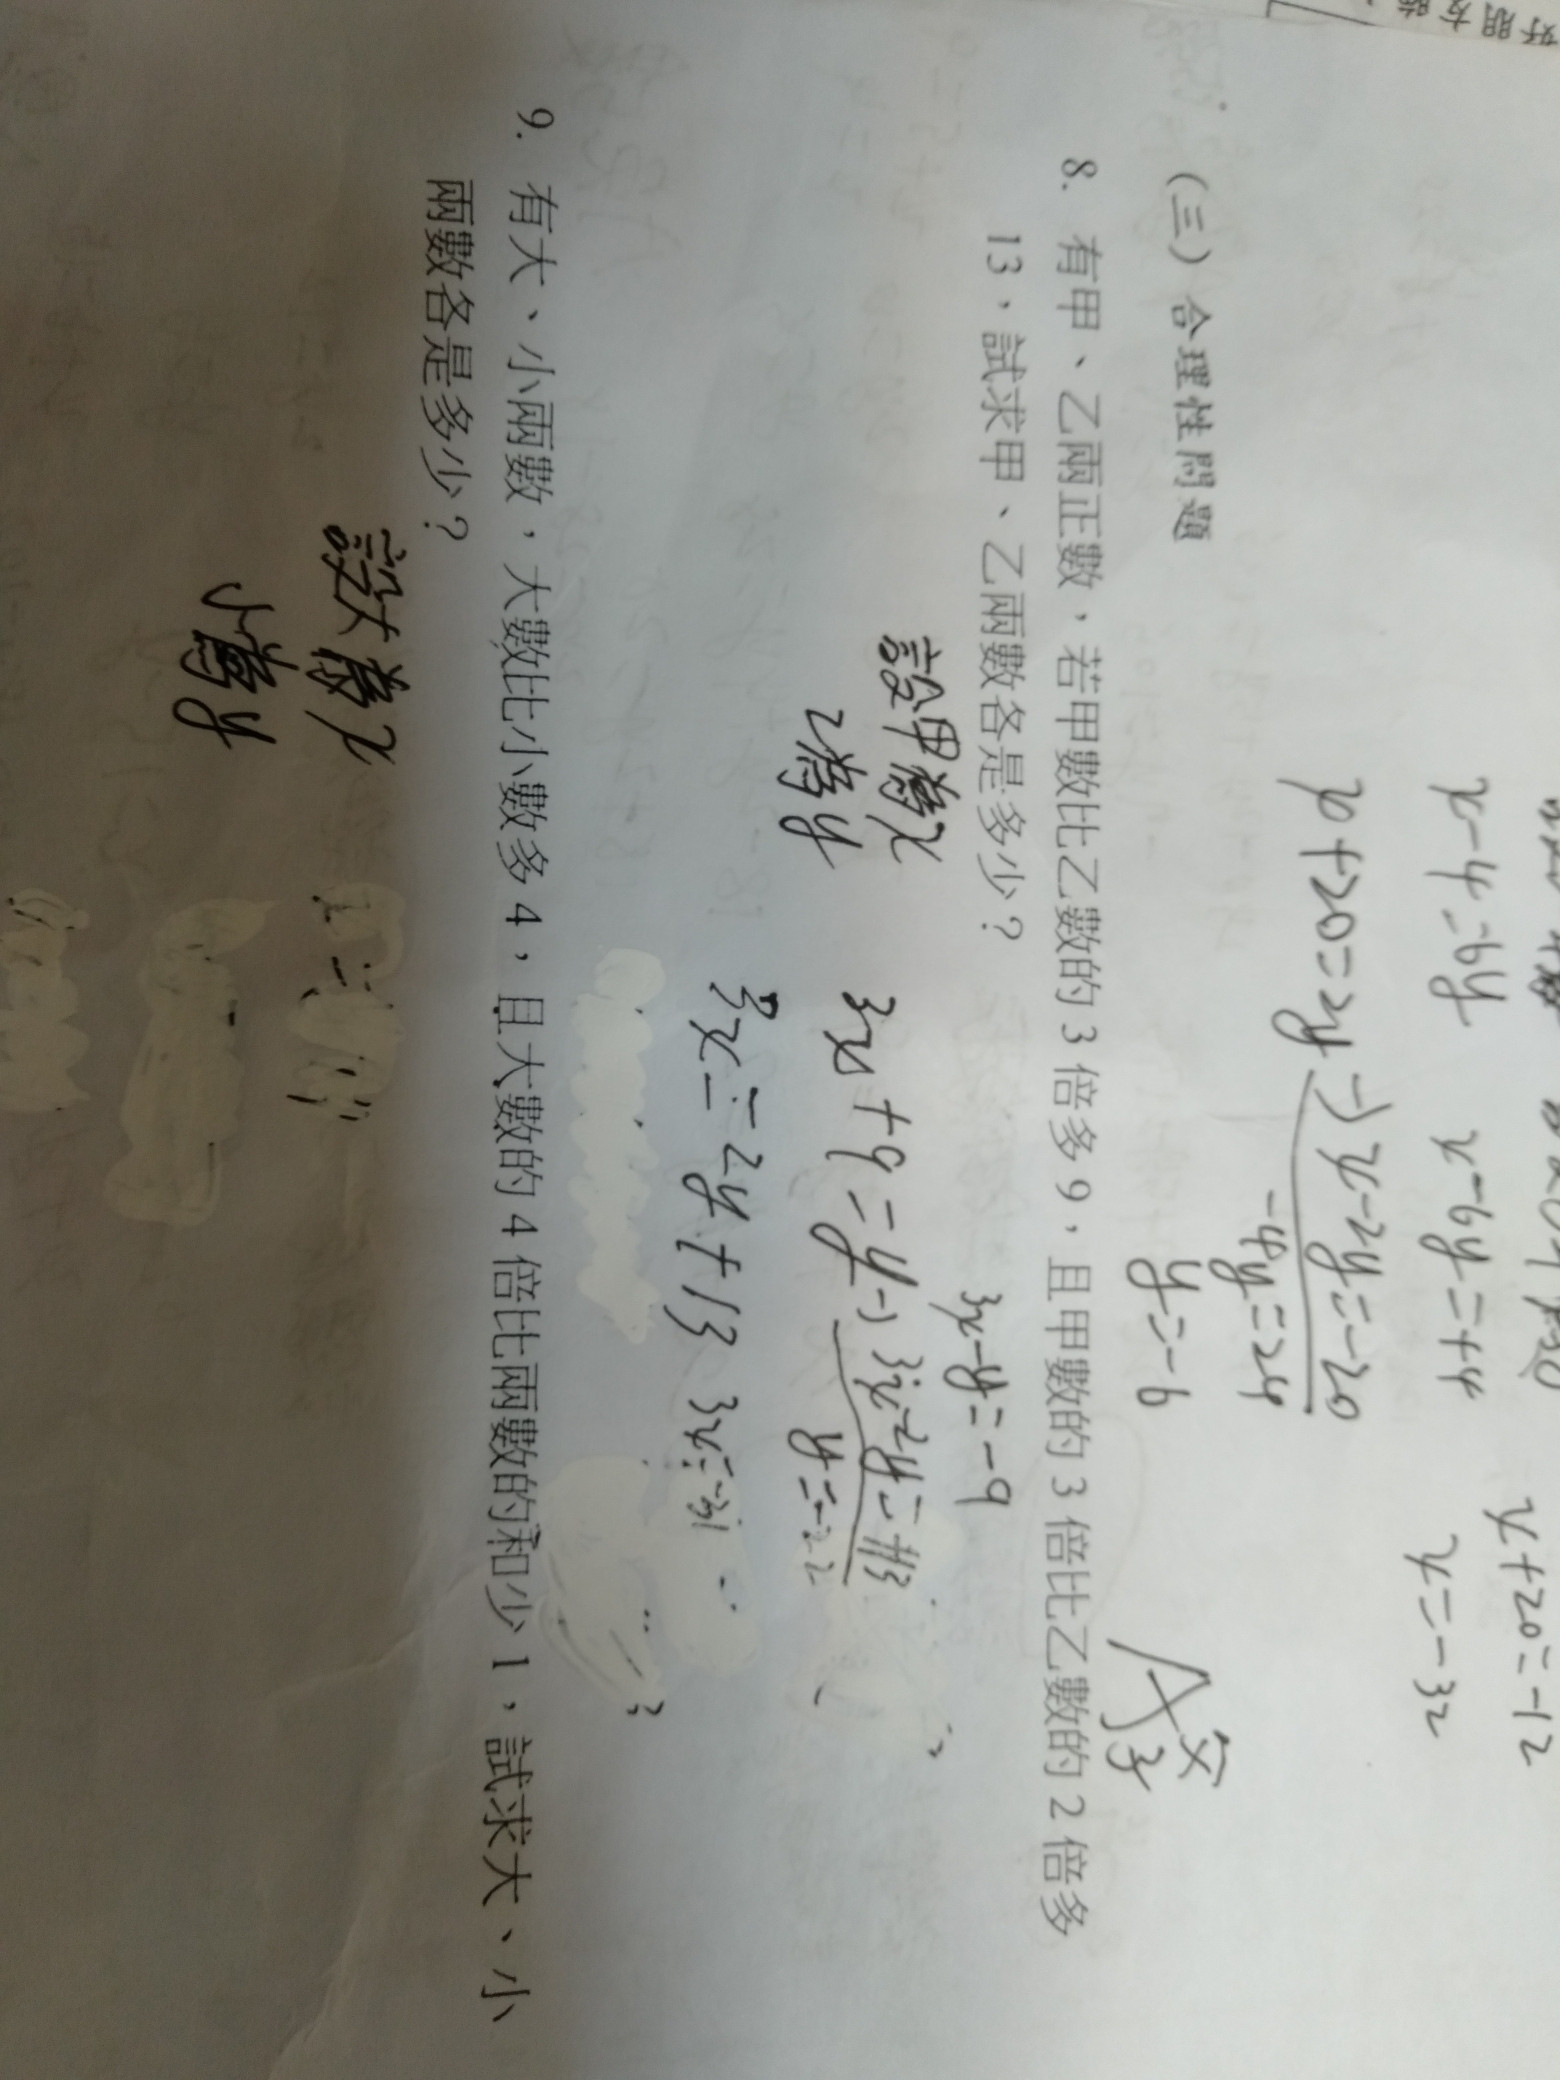 x-4=6y
x-6y=+4
x+20=-12
x+20=2y
-) x-2y=-20
x=-32
-4y=24
y=-6
(三) 合理性問題
8. 有甲、乙兩正數，若甲數比乙數的 3 倍多 9，且甲數的 3 倍比乙數的 2 倍多
13，試求甲、乙兩數各是多少？
設甲為x
乙為y
3x-y=-9
3x+9=y
-) 3x-2y=+13
y=-22
3x=2y+13
3x=-31
9. 有大、小兩數，大數比小數多 4，且大數的 4 倍比兩數的和少 1，試求大、小
兩數各是多少？
設大為x
小為y